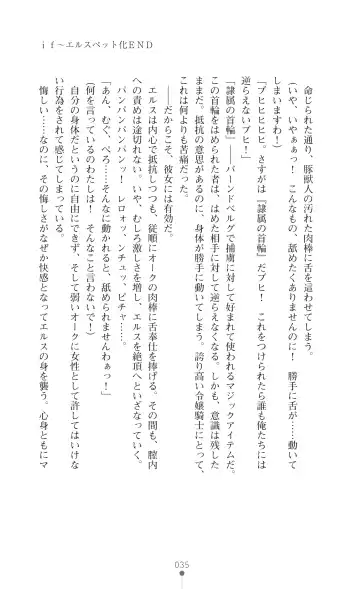 ｉｆ～エルスペット化ＥＮＤ
命じられた通り、豚獣人の汚れた肉棒に舌を這わせてしまう。
（いや、いやぁぁっ！　こんなもの、舐めたくありませんのに！　勝手に舌が……動いて
しまいますわ！）
「ブヒヒヒヒ。さすがは『隷属の首輪』だブヒ！　これをつけられたら誰も俺たちには
逆らえないブヒ！」
『隷属の首輪』――バーンドベルグで捕虜に対して好まれて使われるマジックアイテムだ。
この首輪をはめられた者は、はめた相手に対して逆らえなくなる。しかも、意識は残した
ままだ。抵抗の意思があるのに、身体が勝手に動いてしまう。誇り高い令嬢騎士にとって、
これは何よりも苦痛だった。
――だからこそ、彼女には有効だ。
エルスは内心で抵抗しつつも、従順にオークの肉棒に舌奉仕を捧げる。その間も、膣内
への責めは途切れない。いや、むしろ激しさを増し、エルスを絶頂へといざなっていく。
パンパンパンパンッ！　レロォッ、ンチュッ、ピチャ……。
「あん、むぐ、ぺろ……そんなに動かれると、舐められませんわぁっ！」
（何を言っているのわたしは！　そんなこと言わないで！）
自分の身体だというのに自由にできず、そして弱いオークに女性として許してはいけな
い行為をされて感じてしまっている。
悔しい……なのに、その悔しさがなぜか快感となってエルスの身を襲う。心身ともにマ
035